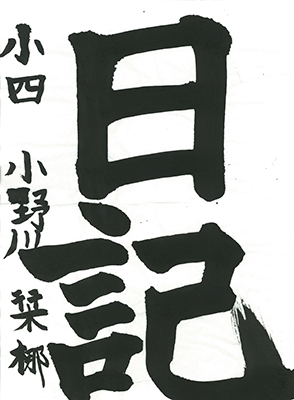 日記
小四 小野川 栞梛